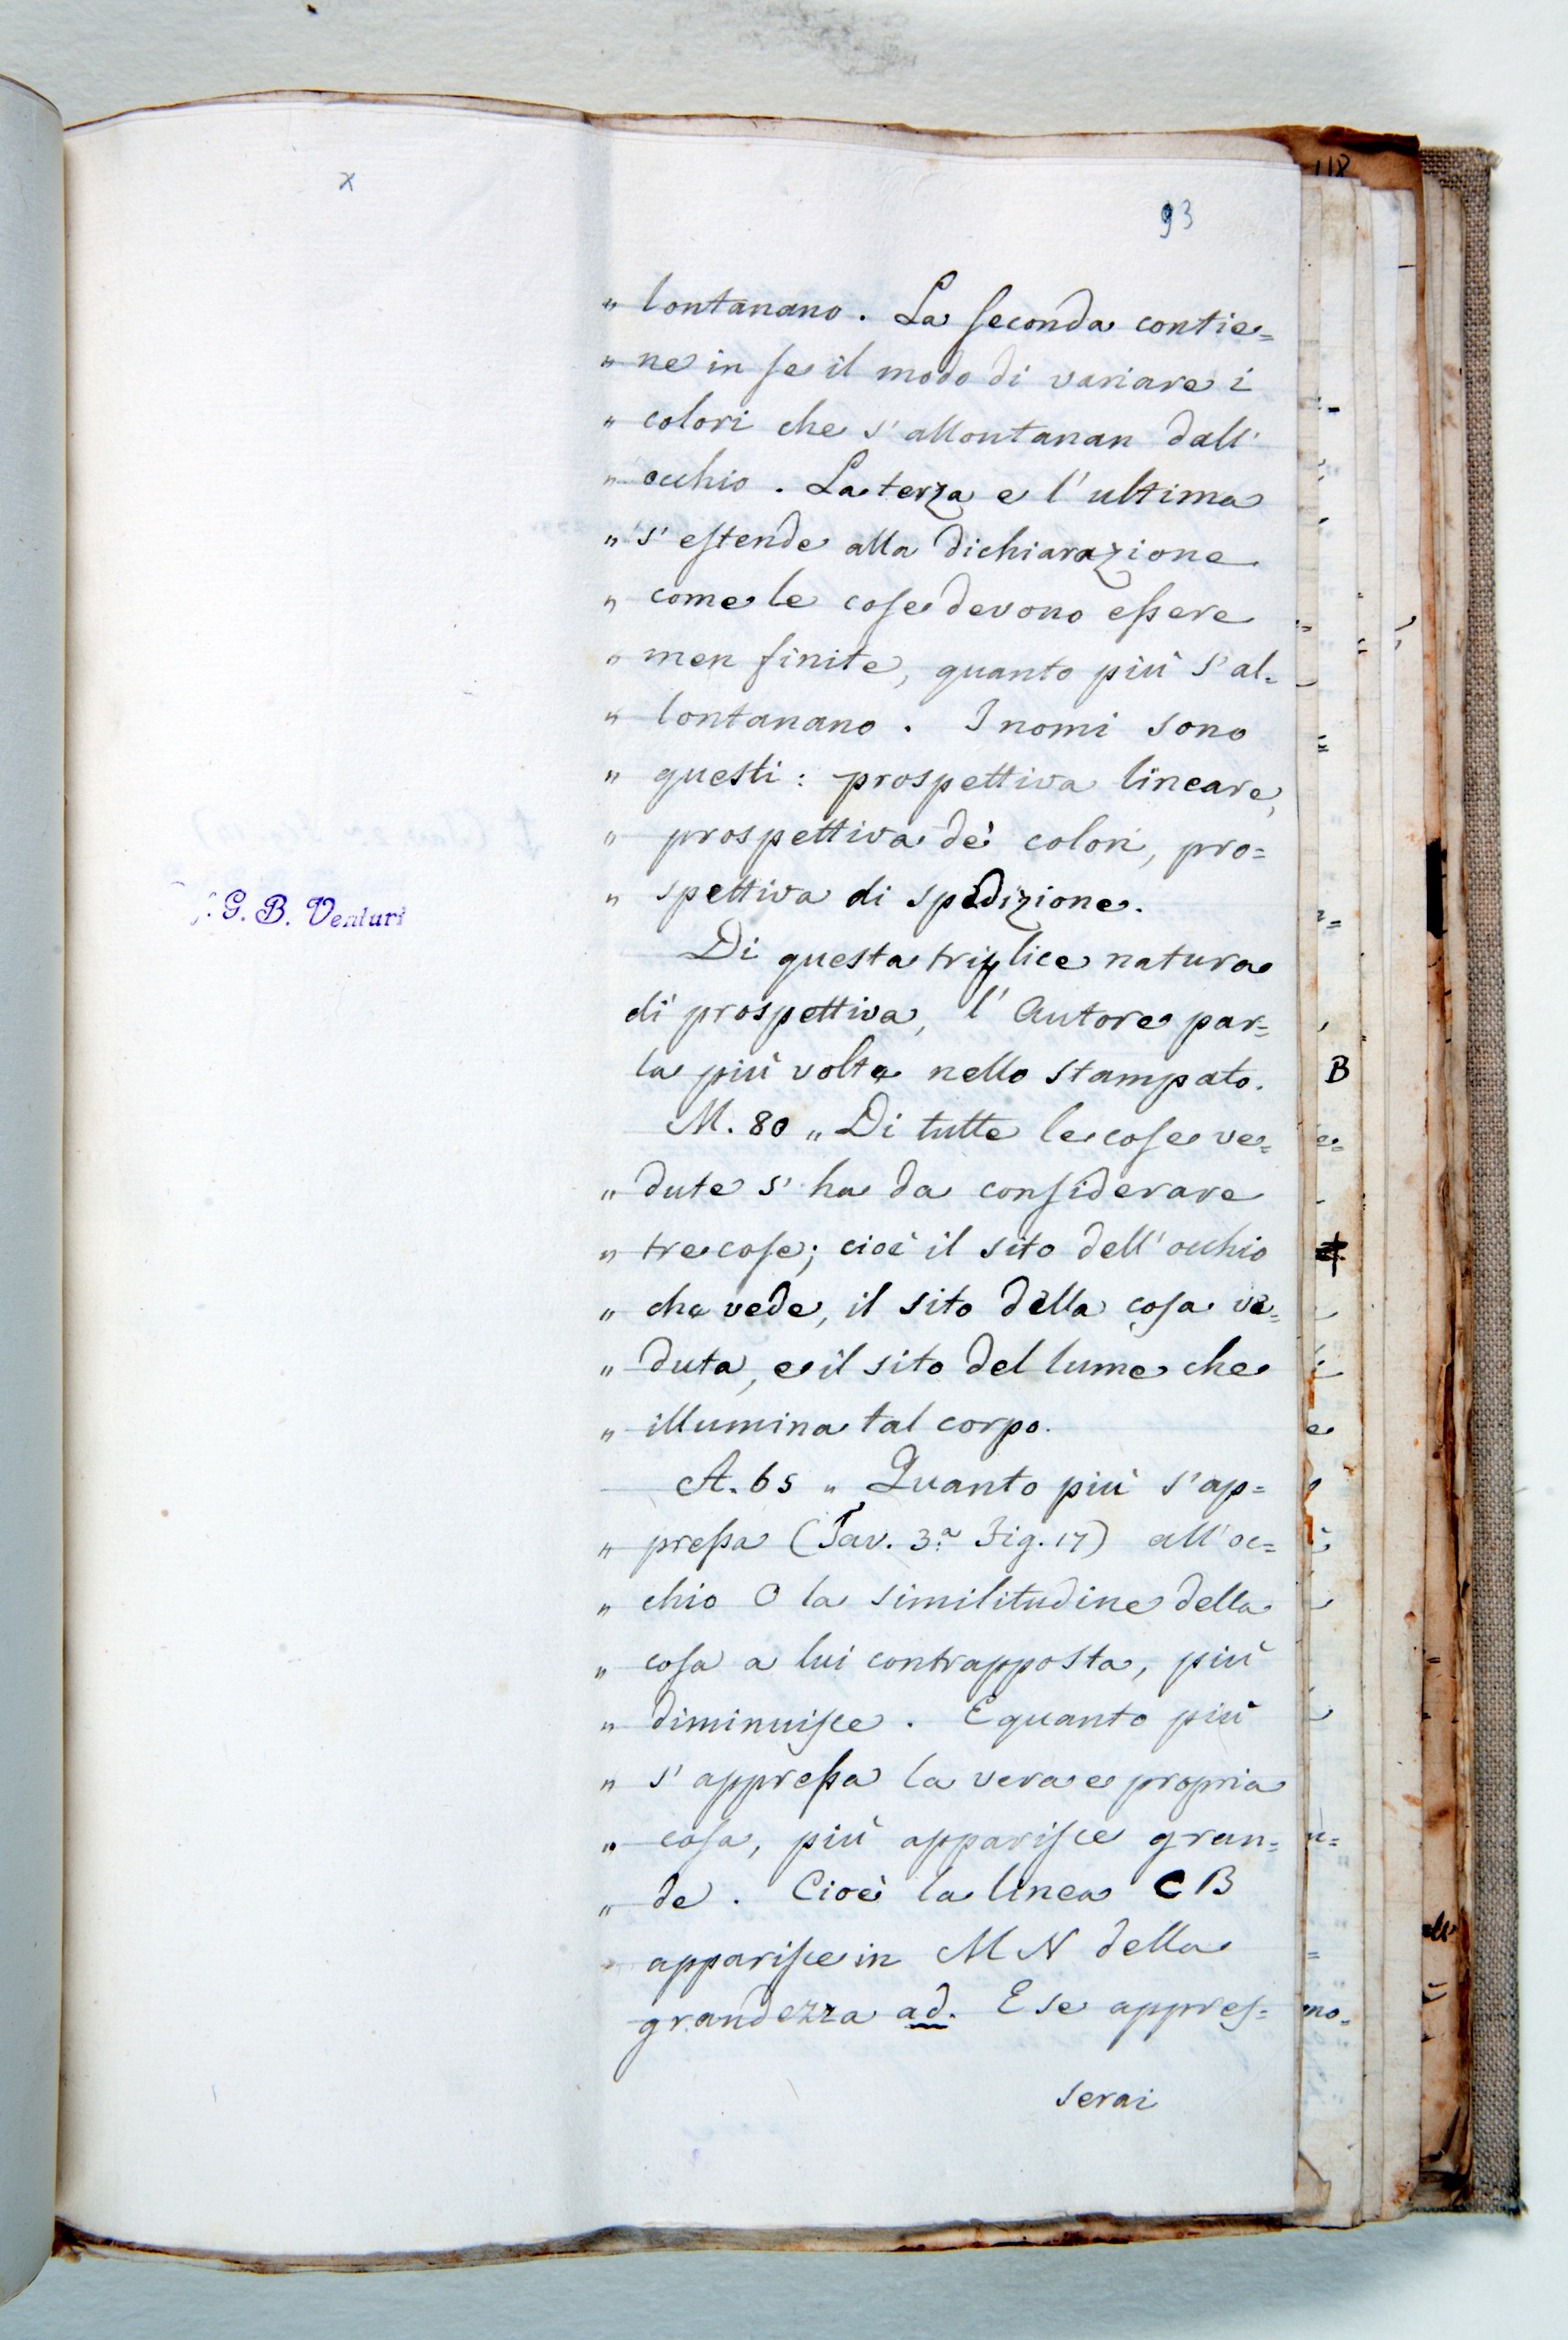 x
93
118
„ lontanano. La seconda contie=
„ ne in se il modo di variare i
„ colori che s'allontanan dall'
„ occhio. La terza e l'ultima
„ s'estende alla dichiarazione
„ come le cose devono essere
„ men finite, quanto più s'al=
„ lontanano. I nomi sono
„ questi: prospettiva lineare,
„ prospettiva de' colori, pro=
„ spettiva di spedizione.
G. B. Venturi
Di questa triplice natura
di prospettiva, l'Autore par=
la più volte nello stampato.
M. 80 „ Di tutte le cose ve=
„ dute s'ha da considerare
„ tre cose; cioè il sito dell'occhio
„ che vede, il sito della cosa ve=
„ duta, e il sito del lume che
„ illumina tal corpo.
A. 65 „ Quanto più s'ap=
„ pressa (Tav. 3.a Fig. 17) all'oc=
„ chio O la similitudine della
„ cosa a lui contrapposta, più
„ diminuisce. E quanto più
„ s'appressa la vera e propria
„ cosa, più apparisce gran=
„ de. Cioè la linea CB
apparisce in MN della
grandezza ad. E se appres=
serai
B
mo=